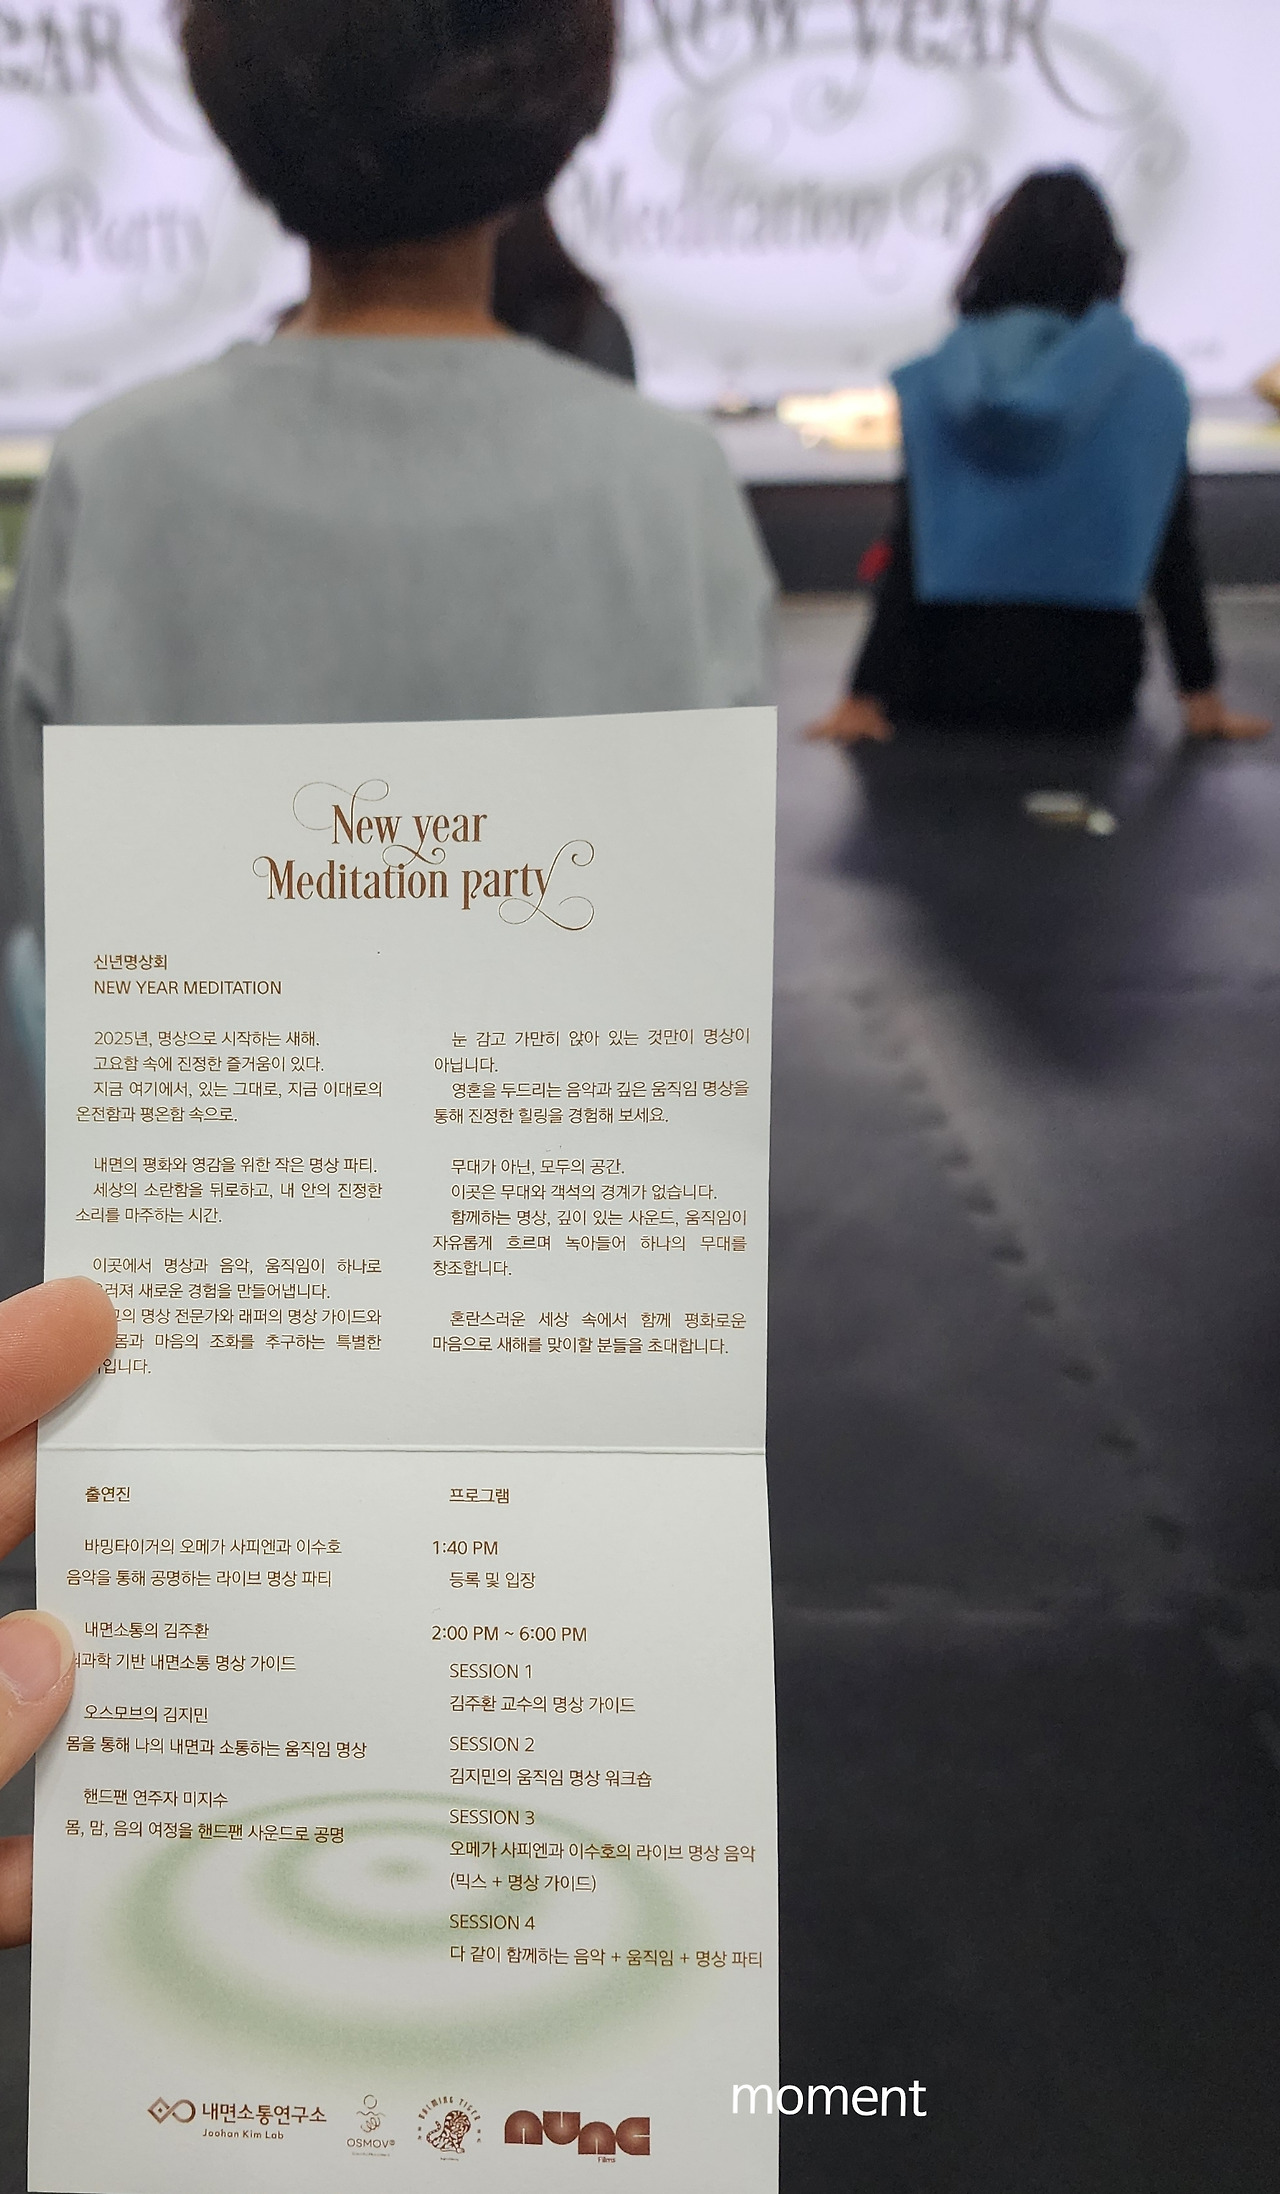 New year
Meditation Party
New year
Meditation party
신년명상회
NEW YEAR MEDITATION
2025년, 명상으로 시작하는 새해.
고요함 속에 진정한 즐거움이 있다.
지금 여기에서, 있는 그대로, 지금 이대로의
온전함과 평온함 속으로.
내면의 평화와 영감을 위한 작은 명상 파티.
세상의 소란함을 뒤로하고, 내 안의 진정한
소리를 마주하는 시간.
이곳에서 명상과 음악, 움직임이 하나로
새로운 경험을 만들어냅니다.
명상 전문가와 래퍼의 명상 가이드와
몸과 마음의 조화를 추구하는 특별한
눈 감고 가만히 앉아 있는 것만이 명상이
아닙니다.
영혼을 두드리는 음악과 깊은 움직임 명상을
통해 진정한 힐링을 경험해 보세요.
무대가 아닌, 모두의 공간.
이곳은 무대와 객석의 경계가 없습니다.
함께하는 명상, 깊이 있는 사운드, 움직임이
자유롭게 흐르며 녹아들어 하나의 무대를
창조합니다.
혼란스러운 세상 속에서 함께 평화로운
마음으로 새해를 맞이할 분들을 초대합니다.
출연진
바밍타이거의 오메가 사피엔과 이수호
음악을 통해 공명하는 라이브 명상 파티
내면소통의 김주환
기반 내면소통 명상 가이드
오스모브의 김지민
몸을 통해 나의 내면과 소통하는 움직임 명상
핸드팬 연주자 미지수
몸, 맘, 음의 여정을 핸드팬 사운드로 공명
프로그램
1:40 PM
등록 및 입장
2:00 PM ~ 6:00 PM
SESSION 1
김주환 교수의 명상 가이드
SESSION 2
김지민의 움직임 명상 워크숍
SESSION 3
오메가 사피엔과 이수호의 라이브 명상 음악
(믹스 + 명상 가이드)
SESSION 4
다 같이 함께하는 음악 + 움직임 + 명상 파티
내면소통연구소
Joohan Kim Lab
OSMOV
BALMING TIGER
nunc
Films
moment